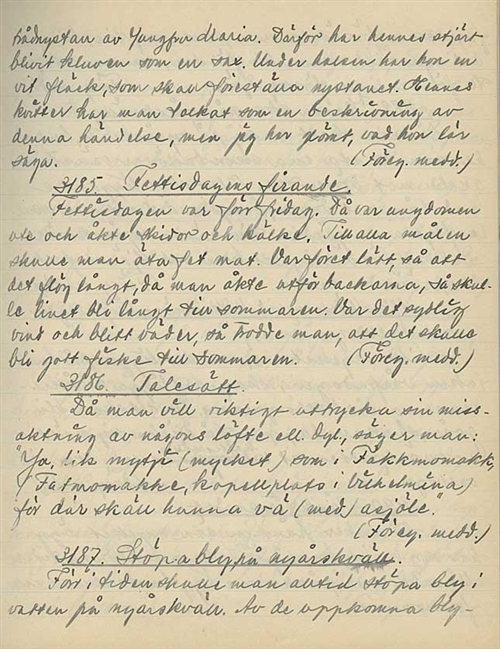 trådnystan av Jungfru Maria. Därför har hennes stjärt
blivit kluven som en sax. Under halsen har hon en
vit fläck, som skall föreställa nystanet. Hennes
kvitter har man tolkat som en beskrivning av
denna händelse, men jag har glömt, vad hon lär
säga. (Föreg. medd.)
3185. Fettisdagens firande.
Fettisdagen var förr friday. Då var ungdomen
ute och åkte skidor och kälke. Till alla målen
skulle man äta fet mat. Var föret lätt, så att
det flög långt, då man åkte utför backarna, så skul-
le linet bli långt till sommaren. Var det sydlig
vind och blitt väder, så trodde man, att det skulle
bli gott fiske till sommaren. (Föreg. medd.)
3186. Talesätt.
Då man vill riktigt uttrycka sin miss-
aktning av någons löfte ell. dyl., säger man:
"Ja, lik mytjy (mycket) som i Fakkmomakk,
(Fatmomakke, kapellplats i Vilhelmina)
för där skall hunna vä (med) "
(Föreg. medd.)
3187. Stöpa bly på nyårskväll.
Förr i tiden skulle man alltid stöpa bly i
vatten på nyårskväll. Av de uppkomna bly-